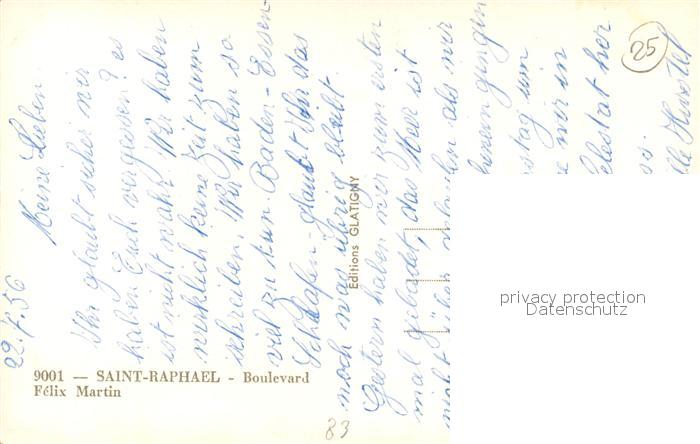 22.7.56
Meine Lieben
Ihr glaubt sicher wir
haben Euch vergessen? es
ist nicht wahr. Wir haben
wirklich keine Zeit zum
schreiben. Wir haben so
viel zu tun. Baden - Essen -
Schlafen - glaubt Ihr das
noch was übrig bleibt.
Gestern haben wir zum ersten
mal gebadet, das Meer ist
nicht als wir
hereingingen
stag um
wir in
elestat her
25
Editions GLATIGNY
9001 — SAINT-RAPHAEL - Boulevard
Félix Martin
83
privacy protection
Datenschutz